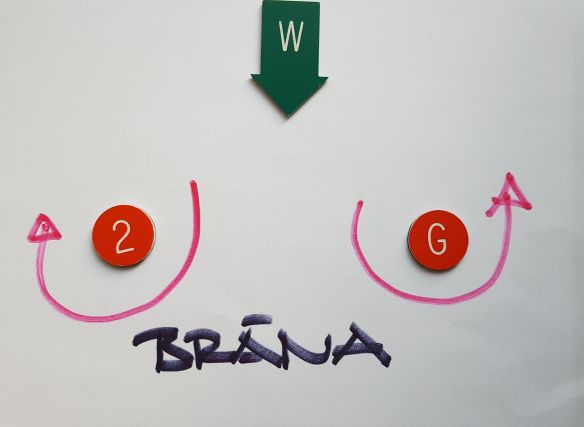 W
2 G
BRÁNA